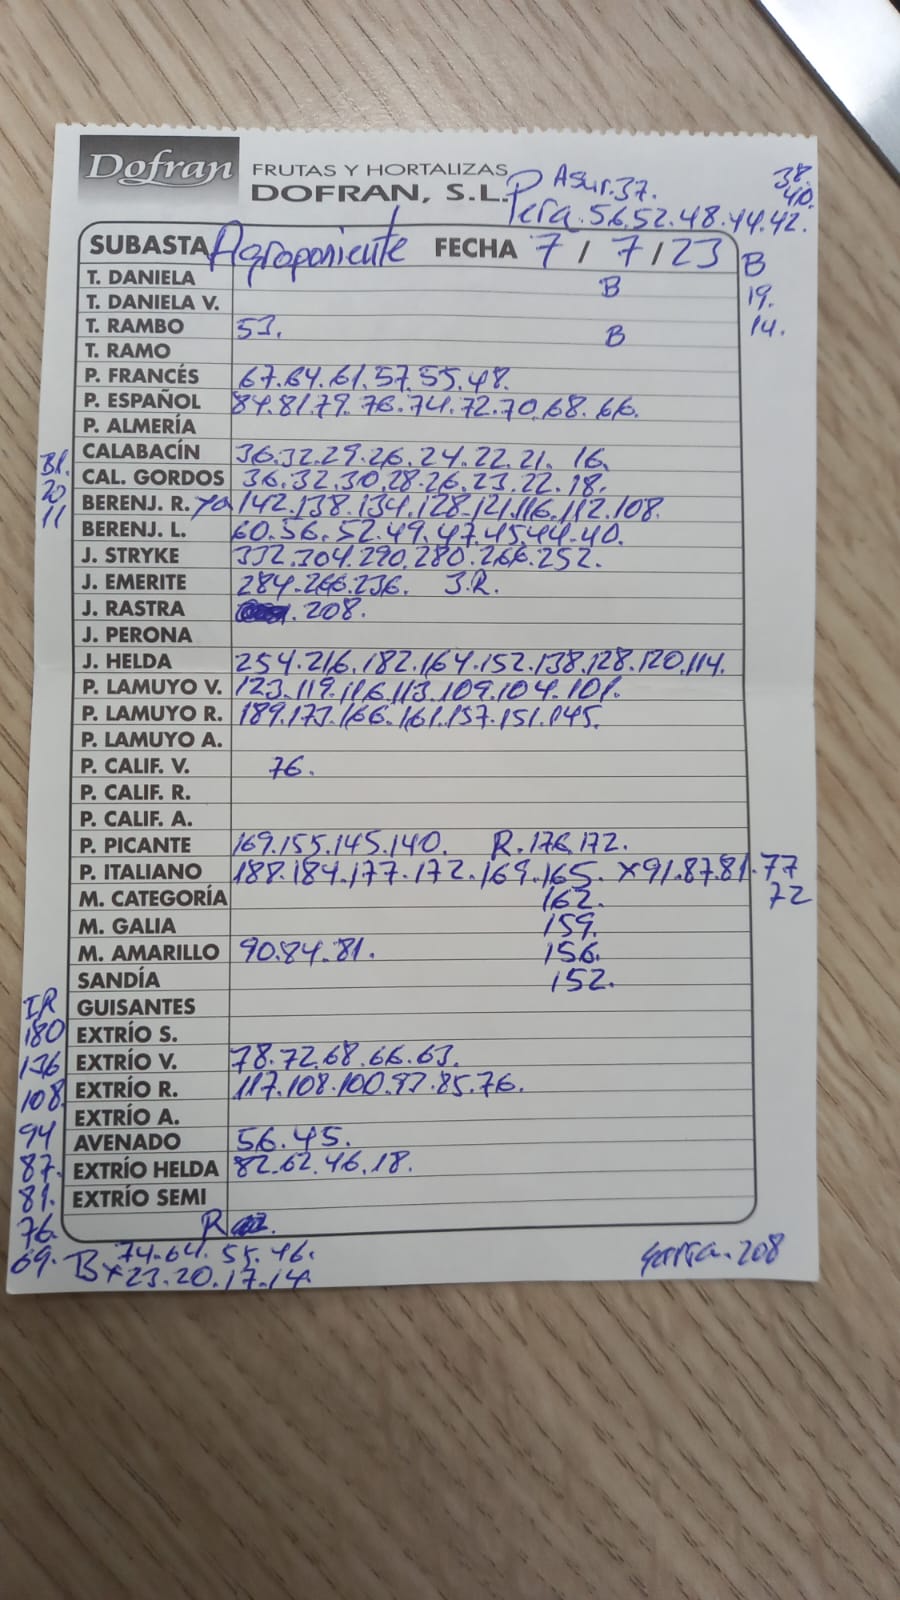 Dofran FRUTAS Y HORTALIZAS
DOFRAN, S.L.
Asur.37. 38.
40.
Pera.56.52.48.44.42.
SUBASTA Agroponiente FECHA 7 / 7 / 23 B
T. DANIELA B 19.
T. DANIELA V. 14.
T. RAMBO 53. B
T. RAMO
P. FRANCÉS 67.64.61.57.55.48.
P. ESPAÑOL 84.81.79.76.74.72.70.68.66.
P. ALMERÍA
CALABACÍN 36.32.29.26.24.22.21. 16.
Bl. CAL. GORDOS 36.32.30.28.26.23.22.18.
20 BERENJ. R. ya 142.138.134.128.121.116.112.108.
11 BERENJ. L. 60.56.52.49.47.45.44.40.
J. STRYKE 332.304.290.280.266.252.
J. EMERITE 284.266.236. J.R.
J. RASTRA 208.
J. PERONA
J. HELDA 254.216.182.164.152.138.128.120.114.
P. LAMUYO V. 123.119.116.113.109.104.101.
P. LAMUYO R. 189.173.166.161.157.151.145.
P. LAMUYO A.
P. CALIF. V. 76.
P. CALIF. R.
P. CALIF. A.
P. PICANTE 169.155.145.140. R.176.172.
P. ITALIANO 188.184.177.172.169.165. x91.87.81.77
M. CATEGORÍA 162. 72
M. GALIA 159.
M. AMARILLO 90.84.81. 156.
SANDÍA 152.
IR GUISANTES
180 EXTRÍO S.
136 EXTRÍO V. 78.72.68.66.63.
108. EXTRÍO R. 117.108.100.97.85.76.
94 EXTRÍO A.
AVENADO 56.45.
87. EXTRÍO HELDA 82.62.46.18.
81. EXTRÍO SEMI
76. R
69. B 74.64.55.46.
x23.20.17.14. 208